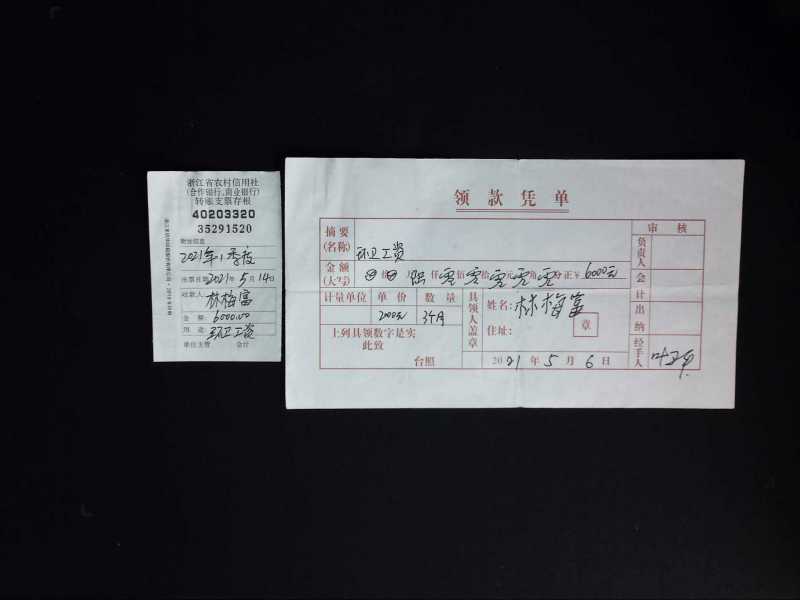 浙江省农村信用社
(合作银行、商业银行)
转账支票存根
40203320
35291520
附加信息
2021年1季度
出票日期2021年5月14日
收款人:林梅富
金 额:6000.00
用 途:环卫工资
单位主管 会计
领款凭单
摘要(名称) 环卫工资 审核
负责人
金额(大写) 仟零佰零拾零元零角零分正¥6000元
会计
计量单位 单价 数量 具领人盖章 姓名:林梅富
2000元 3个月 章 出纳
上列具领数字是实 住址:
此致
台照 2021年5月6日 经手人